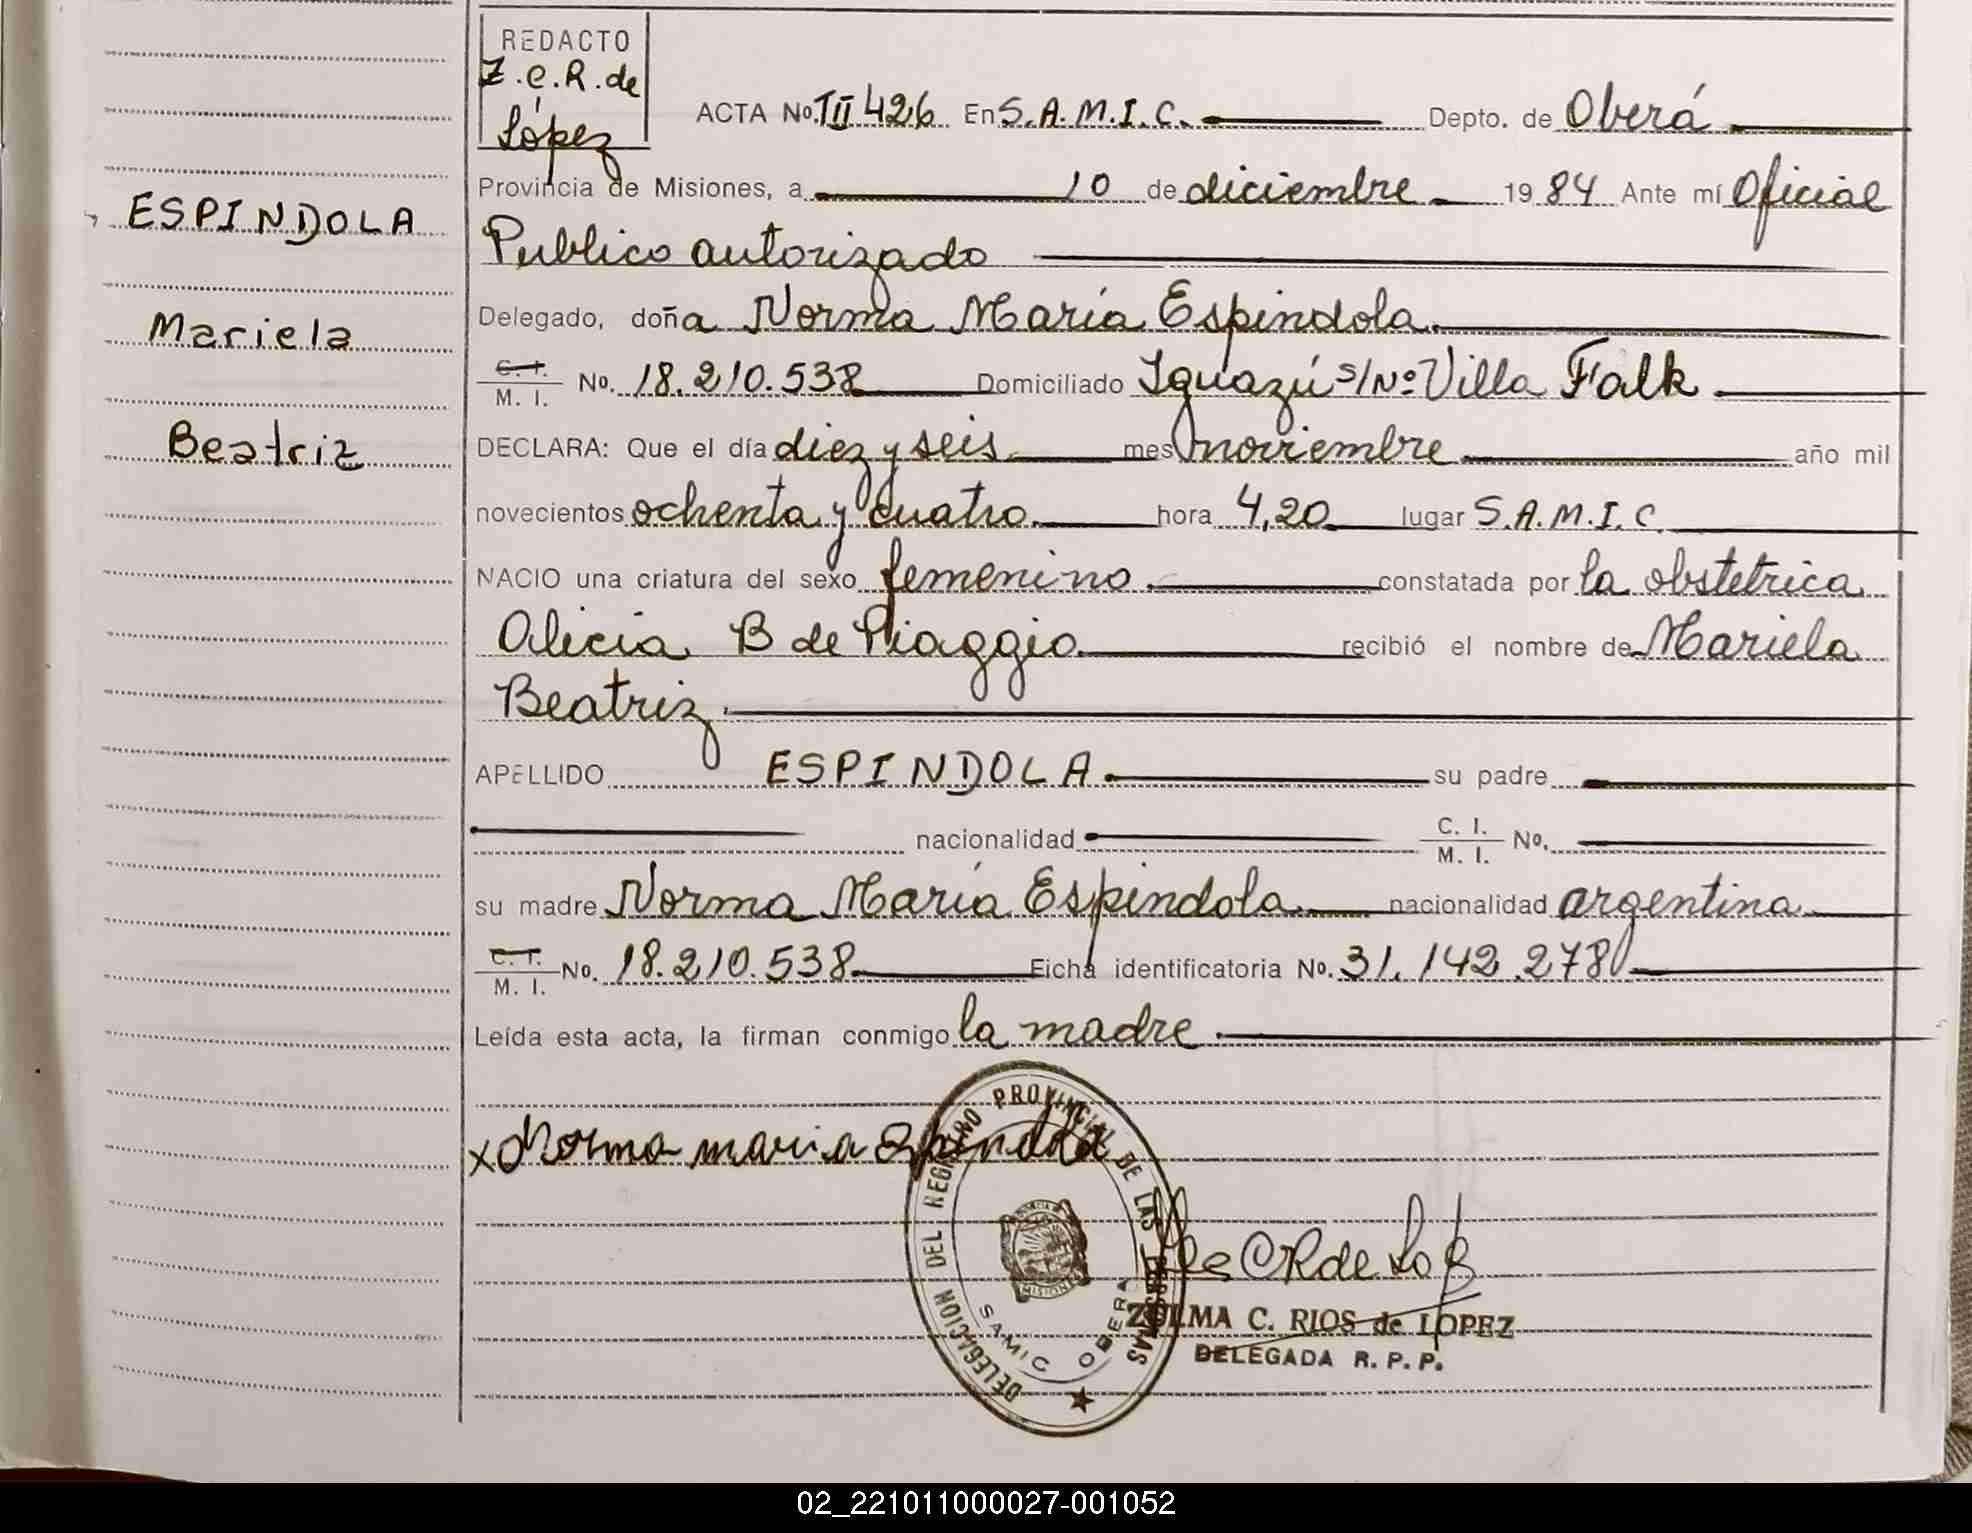 REDACTO
Z.C.R. de
López
ACTA No. III 426 En S.A.M.I.C. Depto. de Oberá
Provincia de Misiones, a 10 de diciembre 1984 Ante mí Oficial
Publico autorizado
Delegado, doña Norma María Espindola
C. I. / M. I. No. 18.210.538 Domiciliado Iguazú s/Nº Villa Falk
DECLARA: Que el día diez y seis mes noviembre año mil
novecientos ochenta y cuatro hora 4,20 lugar S.A.M.I.C.
NACIO una criatura del sexo femenino constatada por la obstetrica
Alicia B de Piaggio recibió el nombre de Mariela
Beatriz
APELLIDO ESPINDOLA su padre
nacionalidad C. I. / M. I. No.
su madre Norma María Espindola nacionalidad argentina
C. I. / M. I. No. 18.210.538 Ficha identificatoria No. 31.142.278
Leída esta acta, la firman conmigo la madre
ESPINDOLA
Mariela
Beatriz
x Norma maria Espindola
DELEGACION DEL REGISTRO PROVINCIAL DE LAS PERSONAS
MISIONES
SAMIC OBERA
ZULMA C. RIOS de LOPEZ
DELEGADA R. P. P.
02_221011000027-001052